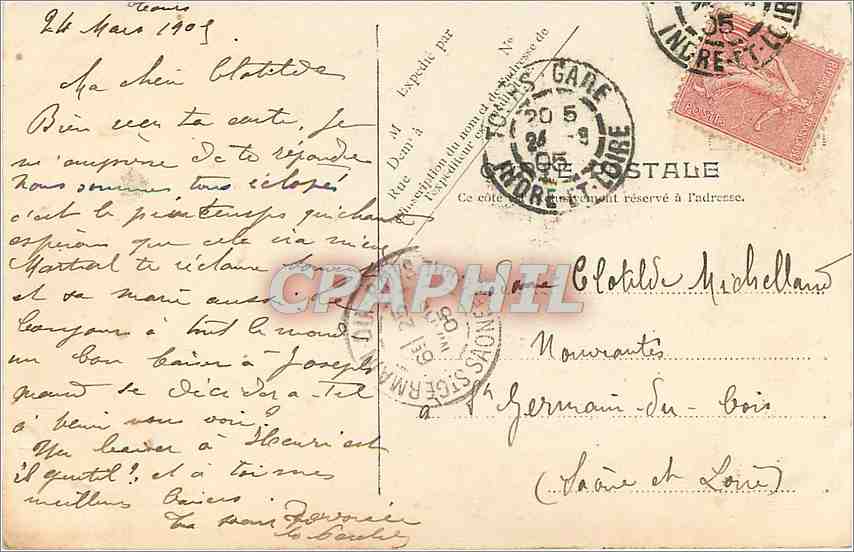 Tours
24 Mars 1905
Ma chère Clotilde
Bien reçu ta carte, je
m'empresse de te répondre
nous sommes tous éclopés
c'est le printemps qui chant
espérons que cela ira mieux
Martial te réclame souvent
et sa marie aussi. le
bonjour à tout le monde
un bon baiser à Joseph
quand se décidera-t-il
à venir nous voir?
Un baiser à Henri est
il gentil? et à toi mes
meilleurs baisers.
Ta sœur
Expédié par
M
Demt à
Rue
No
(Inscription du nom et de l'adresse de
l'expéditeur
TOURS-GARE
20 5
24 -3
05
INDRE-ET-LOIRE
05
INDRE-ET-LOIRE
POSTES
CARTE POSTALE
Ce côté est exclusivement réservé à l'adresse.
Madame Clotilde Michelland
Nouveautés
à St Germain-du-bois
(Saône et Loire)
ST GERMAIN DU BOIS
SAONE
25
05
CPAPHIL